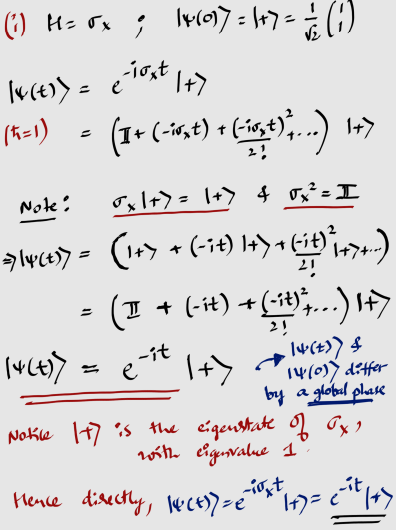 (i) H = σₓ ; |ψ(0)⟩ = |+⟩ = 1/√2 (1 1)
|ψ(t)⟩ = e^{-iσₓt} |+⟩
(ħ=1) = (𝕀 + (-iσₓt) + (-iσₓt)²/2! + ...) |+⟩
Note: σₓ|+⟩ = |+⟩ & σₓ² = 𝕀
⇒ |ψ(t)⟩ = (|+⟩ + (-it)|+⟩ + (-it)²/2! |+⟩+...)
= (𝕀 + (-it) + (-it)²/2! + ...) |+⟩
|ψ(t)⟩ = e^{-it} |+⟩
→ |ψ(t)⟩ &
|ψ(0)⟩ differ
by a global phase
Notice |+⟩ is the eigenstate of σₓ,
with eigenvalue 1.
Hence directly, |ψ(t)⟩ = e^{-iσₓt} |+⟩ = e^{-it} |+⟩